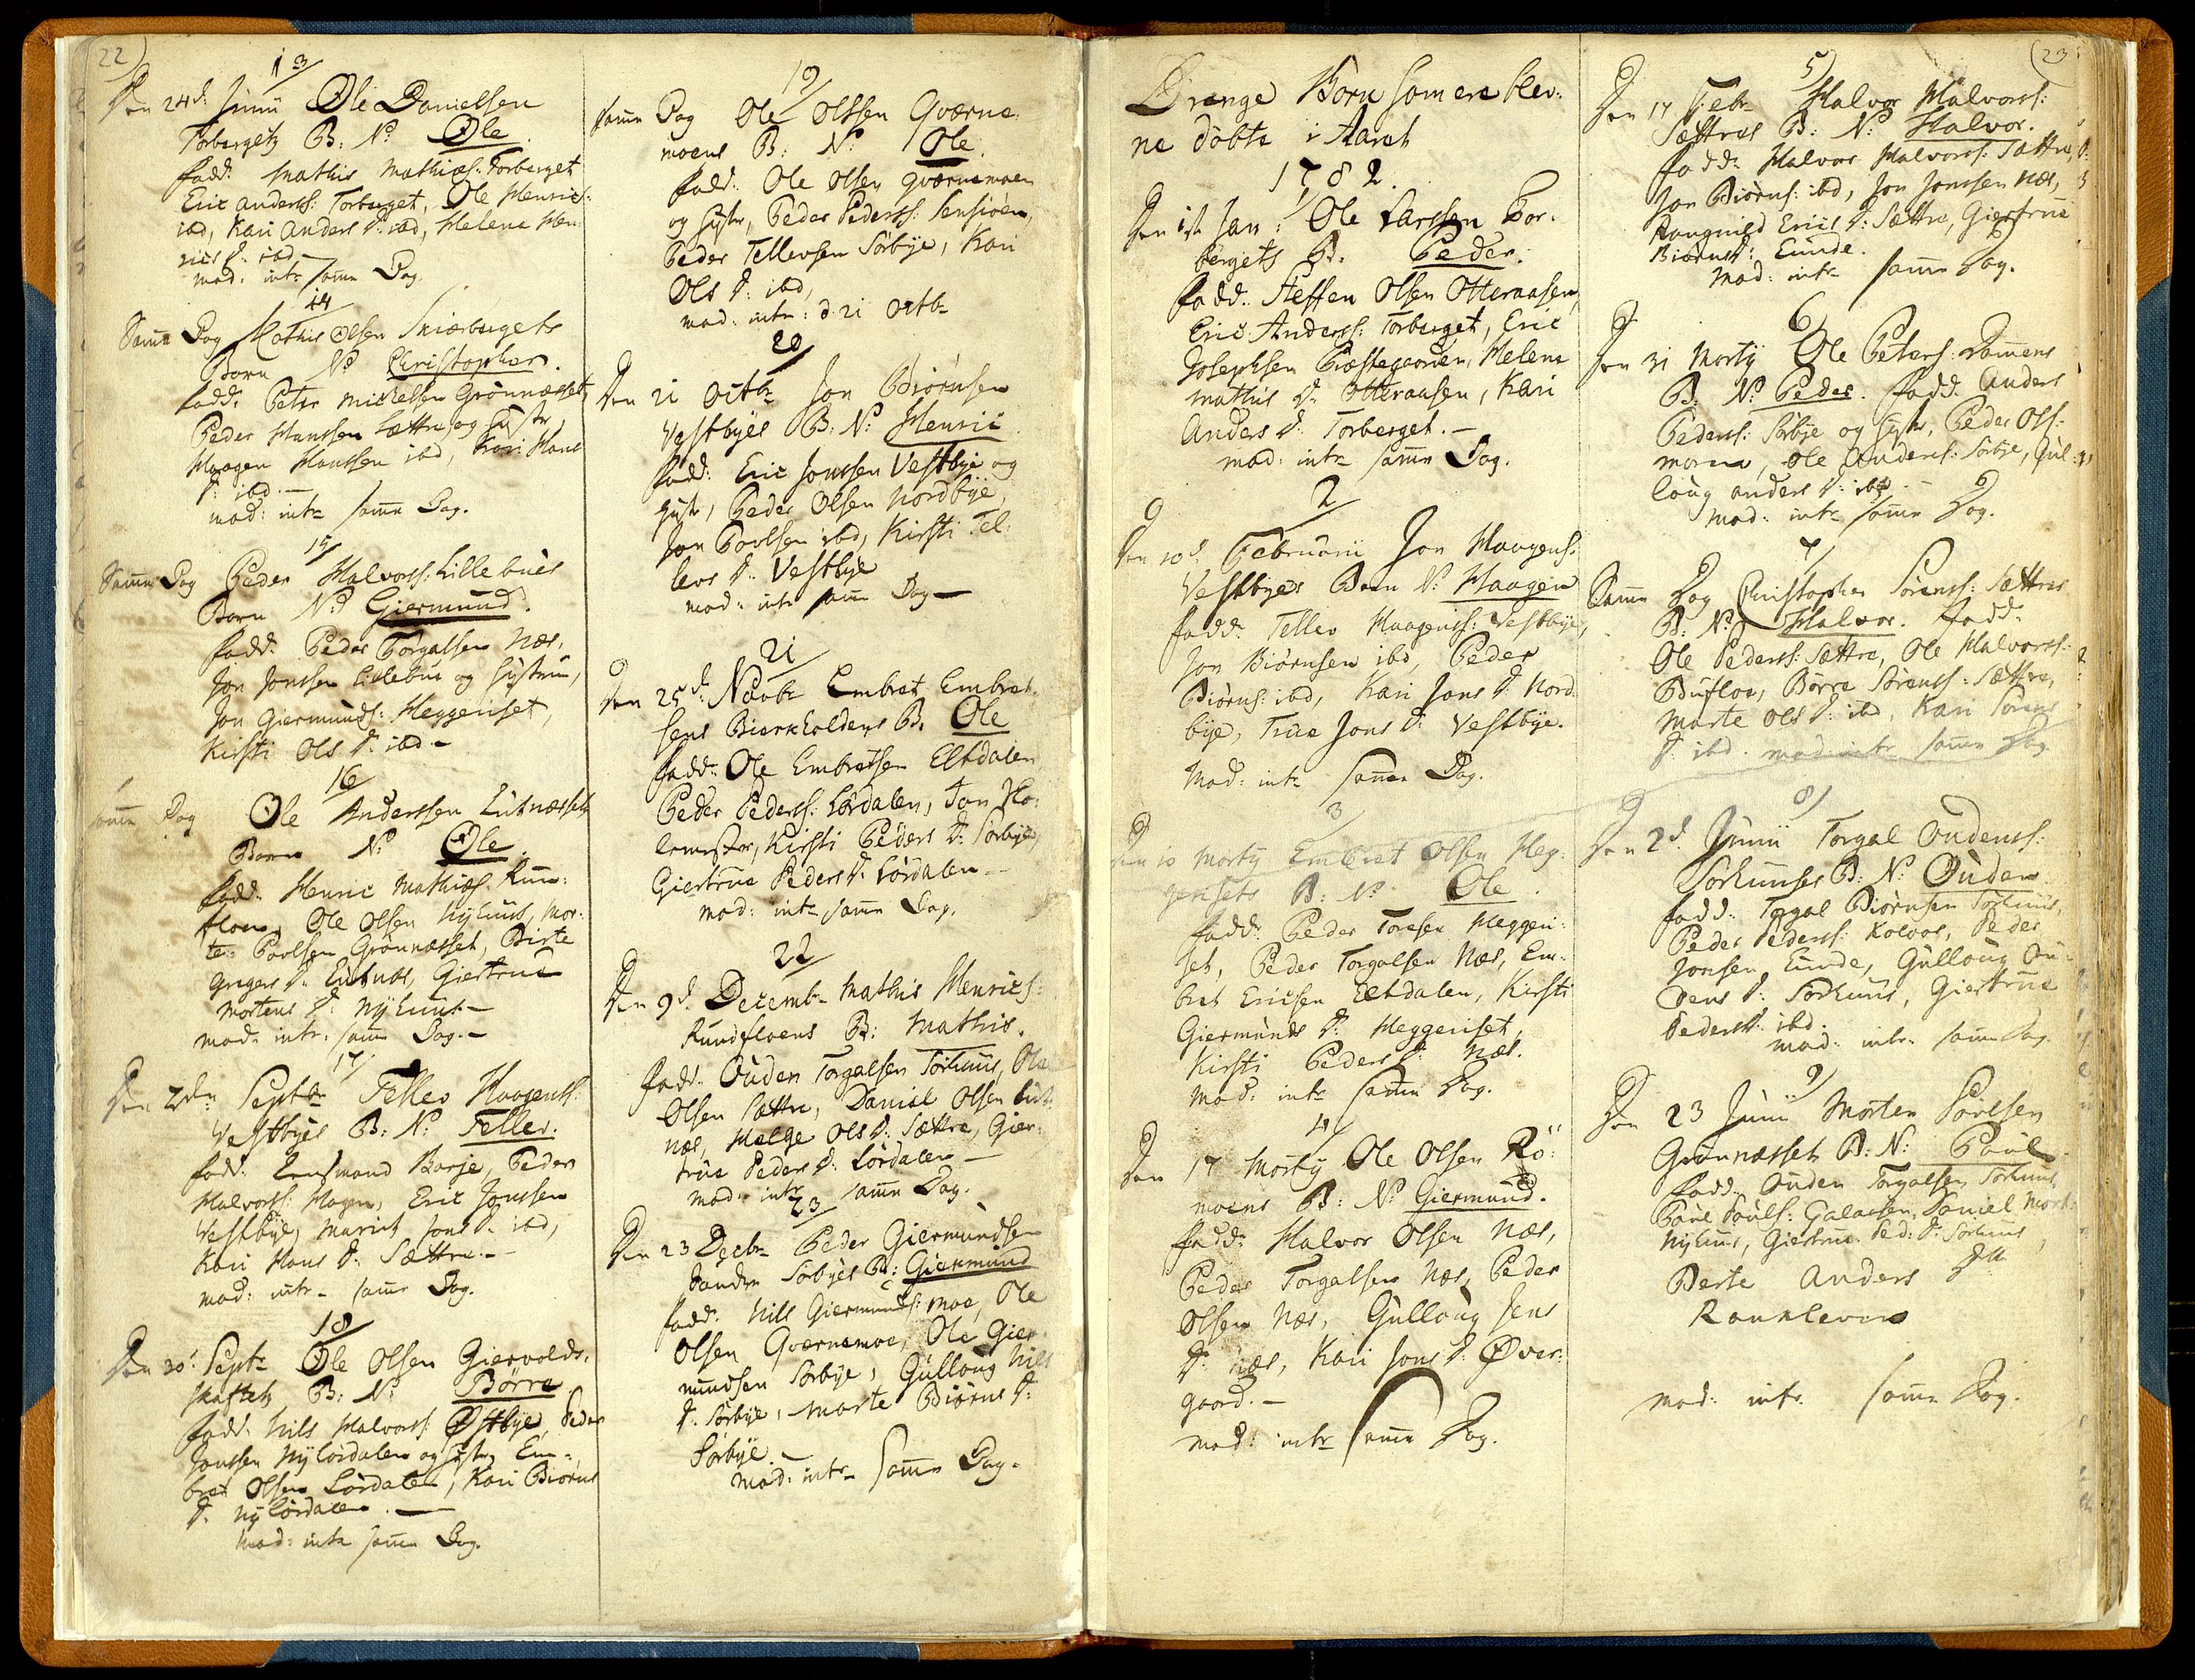 22)
13
Den 24d: Junii Ole Danielsen
Torbergets B: N: Ole
fadd: Mathis Mathiæs: Torberget
Eric Anderss: Torberget, Ole Henrics:
ibd, Kari Anders D: ibd, Helena Hen
rics D: ibd
mod: intr samme Dag
14
Samme Dag Mathis Olsen Sniærbergets
Barn N: Christopher.
fadd: Peter Michelsen Grönnæsset,
Peder Hanssen Sættre og Hustr
Haagen Hanssen ibd, Kari Hans
D: ibd. —
mod: intr samme Dag.
15
Samme Dag Peder Halvorss: Lillebues
Barn N: Giermund.
fadd: Peder Torgalsen Næs,
Jon Jonssen Lillebue og Hustrue,
Jon Giermunds: Heggeriset,
Kirsti Ols D: ibd —
16
samme Dag Ole Anderssen Lutnæssets
Barn N: Ole.
fadd: Henric Mathiæs: Run-
floen, Ole Olsen Nyhuus, Mor-
te: Povlsen Grönnæsset, Birte
D: Lutnæs, Giertrue
Mortens D: Nyhuus —
mod: intr. samme Dag. —
17
Den 2den Septbr Tellev Haagenss:
Vestbyes B: N: Tellev.
fadd: Lensmand Borje, Peder
Halvorss: Mogen, Eric Jonssen
Vestbye, Marit Jons D: ibd,
Kari Hans D: Sættre. —
mod: intr - samme Dag.
18
Den 30: Septr Ole Olsen Giervolds-
skaftets B: N: Börre
fadd: Nils Halvorss: Østbye, Peder
Jonssen Nylördalen og Hustr, Em-
bret Olsen Lördalen, Kari Biörns
D: Nylördalen. —
mod: intr samme Dag.
19
Samme Dag Ole Olssen Qværne-
moens B: N: Ole.
fadd: Ole Olsen Qværnemoen
og Hustr, Peder Pederss: Sensiöen,
Peder Tellevsen Sörbye, Kari
Ols D: ibd,
mod: intr: d: 21 Octb-
20
Den 21 Octbr Jon Biörnsen
Vestbyes B: N: Henric
fadd: Eric Jonssen Vestbye og
Hustr, Peder Olsen Nordbye,
Jon Povlsen ibd, Kirsti Tel-
levs D: Vestbye
mod: intr samme Dag —
21
Den 25d: Novbr Embret Embret-
sens Bierkholdens B. Ole
fadd: Ole Embretsen Eltdalen
Peder Pederss: Lördalen, Jon Ho-
lemster, Kirsti Peders D: Sörbye,
Giertrue Peders D: Lördalen —
mod: intr samme Dag.
22
Den 9d: Decemb- Mathis Henrics:
Rundfloens B: Mathis.
fadd: Ouden Torgalsen Sörhuus, Ole
Olsen Sættre, Daniel Olsen Lut-
næs, Helge Ols D: Sættre, Gier-
true Peders D: Lördalen —
mod: intr samme Dag.
23
Den 23 Decbr Peder Giermundsen
Sörbyes B: Giermund
fadd: Nils Giermunds: Moe, Ole
Olsen Qværnemoe, Ole Gier-
mundsen Sörbye, Gulloug Nils
D: Sörbye, Marte Biörns D:
Sörbye. —
mod: intr - samme Dag.
Drenge Börn som ere blev-
ne döbte i Aaret
1782.
1
Den 1st Jan: Ole Larssen Tor-
bergets B. Peder.
fadd: Steffen Olsen Otteraasen,
Eric Anderss: Torberget, Eric
Josephsen Præstegaarden, Helena
Mathis D: Otteraasen, Kari
Anders D: Torberget. —
mod: intr samme Dag.
2
Den 10d: Februarii Jon Haagens:
Vestbyes Barn N: Haagen
fadd: Tellev Haagenss: Vestbye,
Jon Biörnsen ibd, Peder
Biörns: ibd, Kari Jons D: Nord-
bye, True Jons D: Vestbye.
Mod: intr samme Dag.
3
Den 10 Martij Embret Olsen Heg-
gerisets B: N: Ole.
fadd: Peder Toresen Heggeri-
set, Peder Torgalsen Næs, Em-
bret Ericsen Eltdalen, Kirsti
Giermunds D: Heggeriset,
Kirsti Peders D: Næs.
Mod: intr samme Dag.
4
Den 17 Martij Ole Olsen Rö-
moens B: N: Giermund.
fadd: Halvor Olsen Næs,
Peder Torgalsen Næs, Peder
Olsen Næs, Gulloug Jens
D: Næs, Kari Jons D: Över-
gaard. —
mod: intr samme Dag.
(23
5
Den 17 Febr Halvor Halvorss:
Sættres B: N: Halvor.
fadd: Halvor Halvorss: Sættre,
Jon Biörns: ibd, Jon Jonssen Næs,
Rangnild Erics D: Sættre, Giertrue
Biörns D: Lunde.
mod: intr samme Dag.
6
Den 31 Martij Ole Peters: Dammens
B: N: Peder. fadd: Anders
Pederss: Sörbye og Hustr, Peder Ols:
moren, Ole Anders: Sörbye, Gul-
loug Anders D: ibd —
mod: intr samme Dag.
7
Samme Dag Christopher Sörenss: Sættres
B: N: Halvor. fadd:
Ole Pederss: Sættre, Ole Halvorss:
Bufloe, Börre Sörenss: Sættre,
Marte Ols D: ibd, Kari Sörens
D: ibd. mod: intr samme Dag
8
Den 2d: Junii Torgal Oudenss:
Sörhuuses B: N: Ouden
fadd: Torgal Biörnsen Sörhuus,
Peder Pederss: Kolaas, Peder
Jonsen Lunde, Gulloug Ou-
dens D: Sörhuus, Giertrue
Peders D: ibd.
mod: intr. samme Dag.
9
Den 23 Junii Morten Povlsen
Grönnæssets B: N: Povl
fadd: Ouden Torgalsen Sörhuus,
Povl Povls: Galaasen, Daniel Mort:
Nyhuus, Giertrue Ped: D: Sörhuus,
Berte Anders D:
Ronkleven
mod: intr. samme Dag.